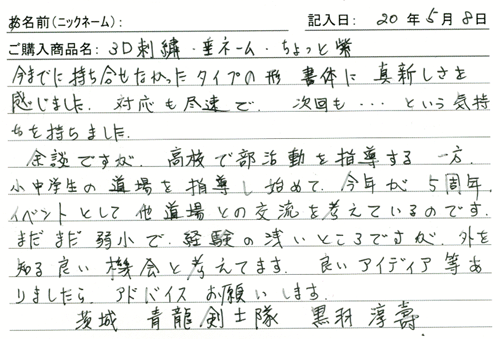 お名前(ニックネーム):
記入日: 20年5月8日
ご購入商品名: 3D刺繍・垂ネーム・ちょっと紫
今までに持ち合せなかったタイプの形 書体に 真新しさを
感じました. 対応も迅速で. 次回も・・・という気持
ちを持ちました.
余談ですが. 高校で部活動を指導する 一方.
小中学生の道場を指導し始めて. 今年が 5周年.
イベントとして他道場との交流を考えているのです.
まだまだ弱小で. 経験の浅いところですが. 外を
知る良い機会と考えてます. 良いアイディア等あ
りましたら. アドバイスお願いします.
茨城 青龍剣士隊 黒羽淳壽